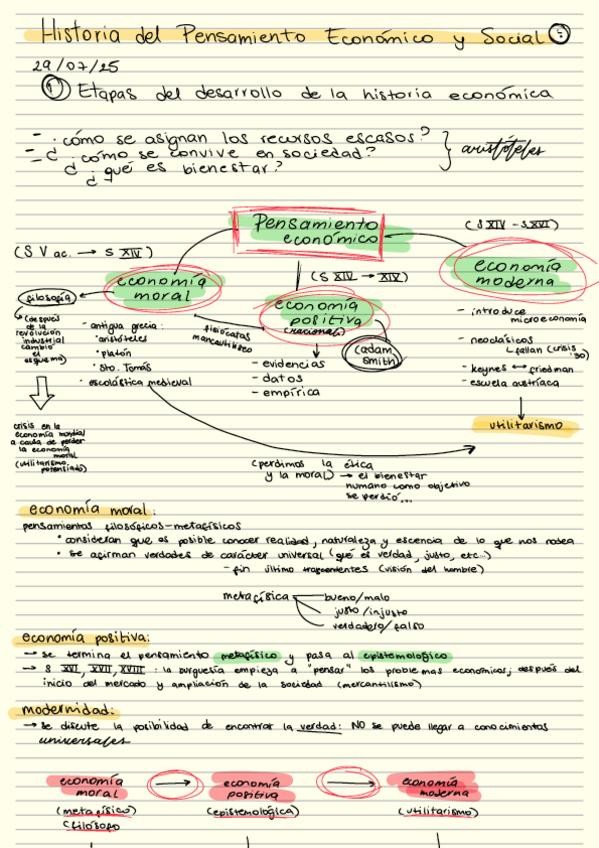 Historia del Pensamiento Económico y Social
29/07/25
① Etapas del desarrollo de la historia económica
- ¿cómo se asignan los recursos escasos?
- ¿cómo se convive en sociedad?
¿qué es bienestar?
aristóteles
Pensamiento económico
(S V ac. → S XIV)
economía moral
(S XIV → XIV)
economía positiva
(racional)
(S XIV - SXVI)
economía moderna
filosofía
(después de la revolución industrial cambió el esquema)
- antigua grecia:
• aristóteles
• platón
• Sto. Tomás
- escolástica medieval
fisiócatas
mercantilismo
(adam smith)
- evidencias
- datos
- empírica
- introduce microeconomía
- neoclásicos
↳ fallan (crisis '30)
- keynes ↔ friedman
- escuela austríaca
utilitarismo
crisis en la
economía mundial
a causa de perder
la economía
moral
(utilitarismo,
potenciado)
(perdimos la ética
y la moral) → el bienestar
humano como objetivo
se perdió...
economía moral:
pensamientos filosóficos-metafísicos
• consideran que es posible conocer realidad, naturaleza y escencia de lo que nos rodea
• se afirman verdades de carácter universal (qué es verdad, justo, etc..)
- fin último (visión del hombre)
metafísica
bueno/malo
justo/injusto
verdadero/falso
economía positiva:
→ se termina el pensamiento metafísico y pasa al epistemológico
→ S XVI, XVII, XVIII : la burguesía empieza a "pensar" los problemas económicos; después del
inicio del mercado y ampliación de la sociedad (mercantilismo)
modernidad:
→ se discute la posibilidad de encontrar la verdad: NO se puede llegar a conocimientos
universales
economía moral → economía positiva → economía moderna
(metafísico) (epistemológica) (utilitarismo)
(filósofo